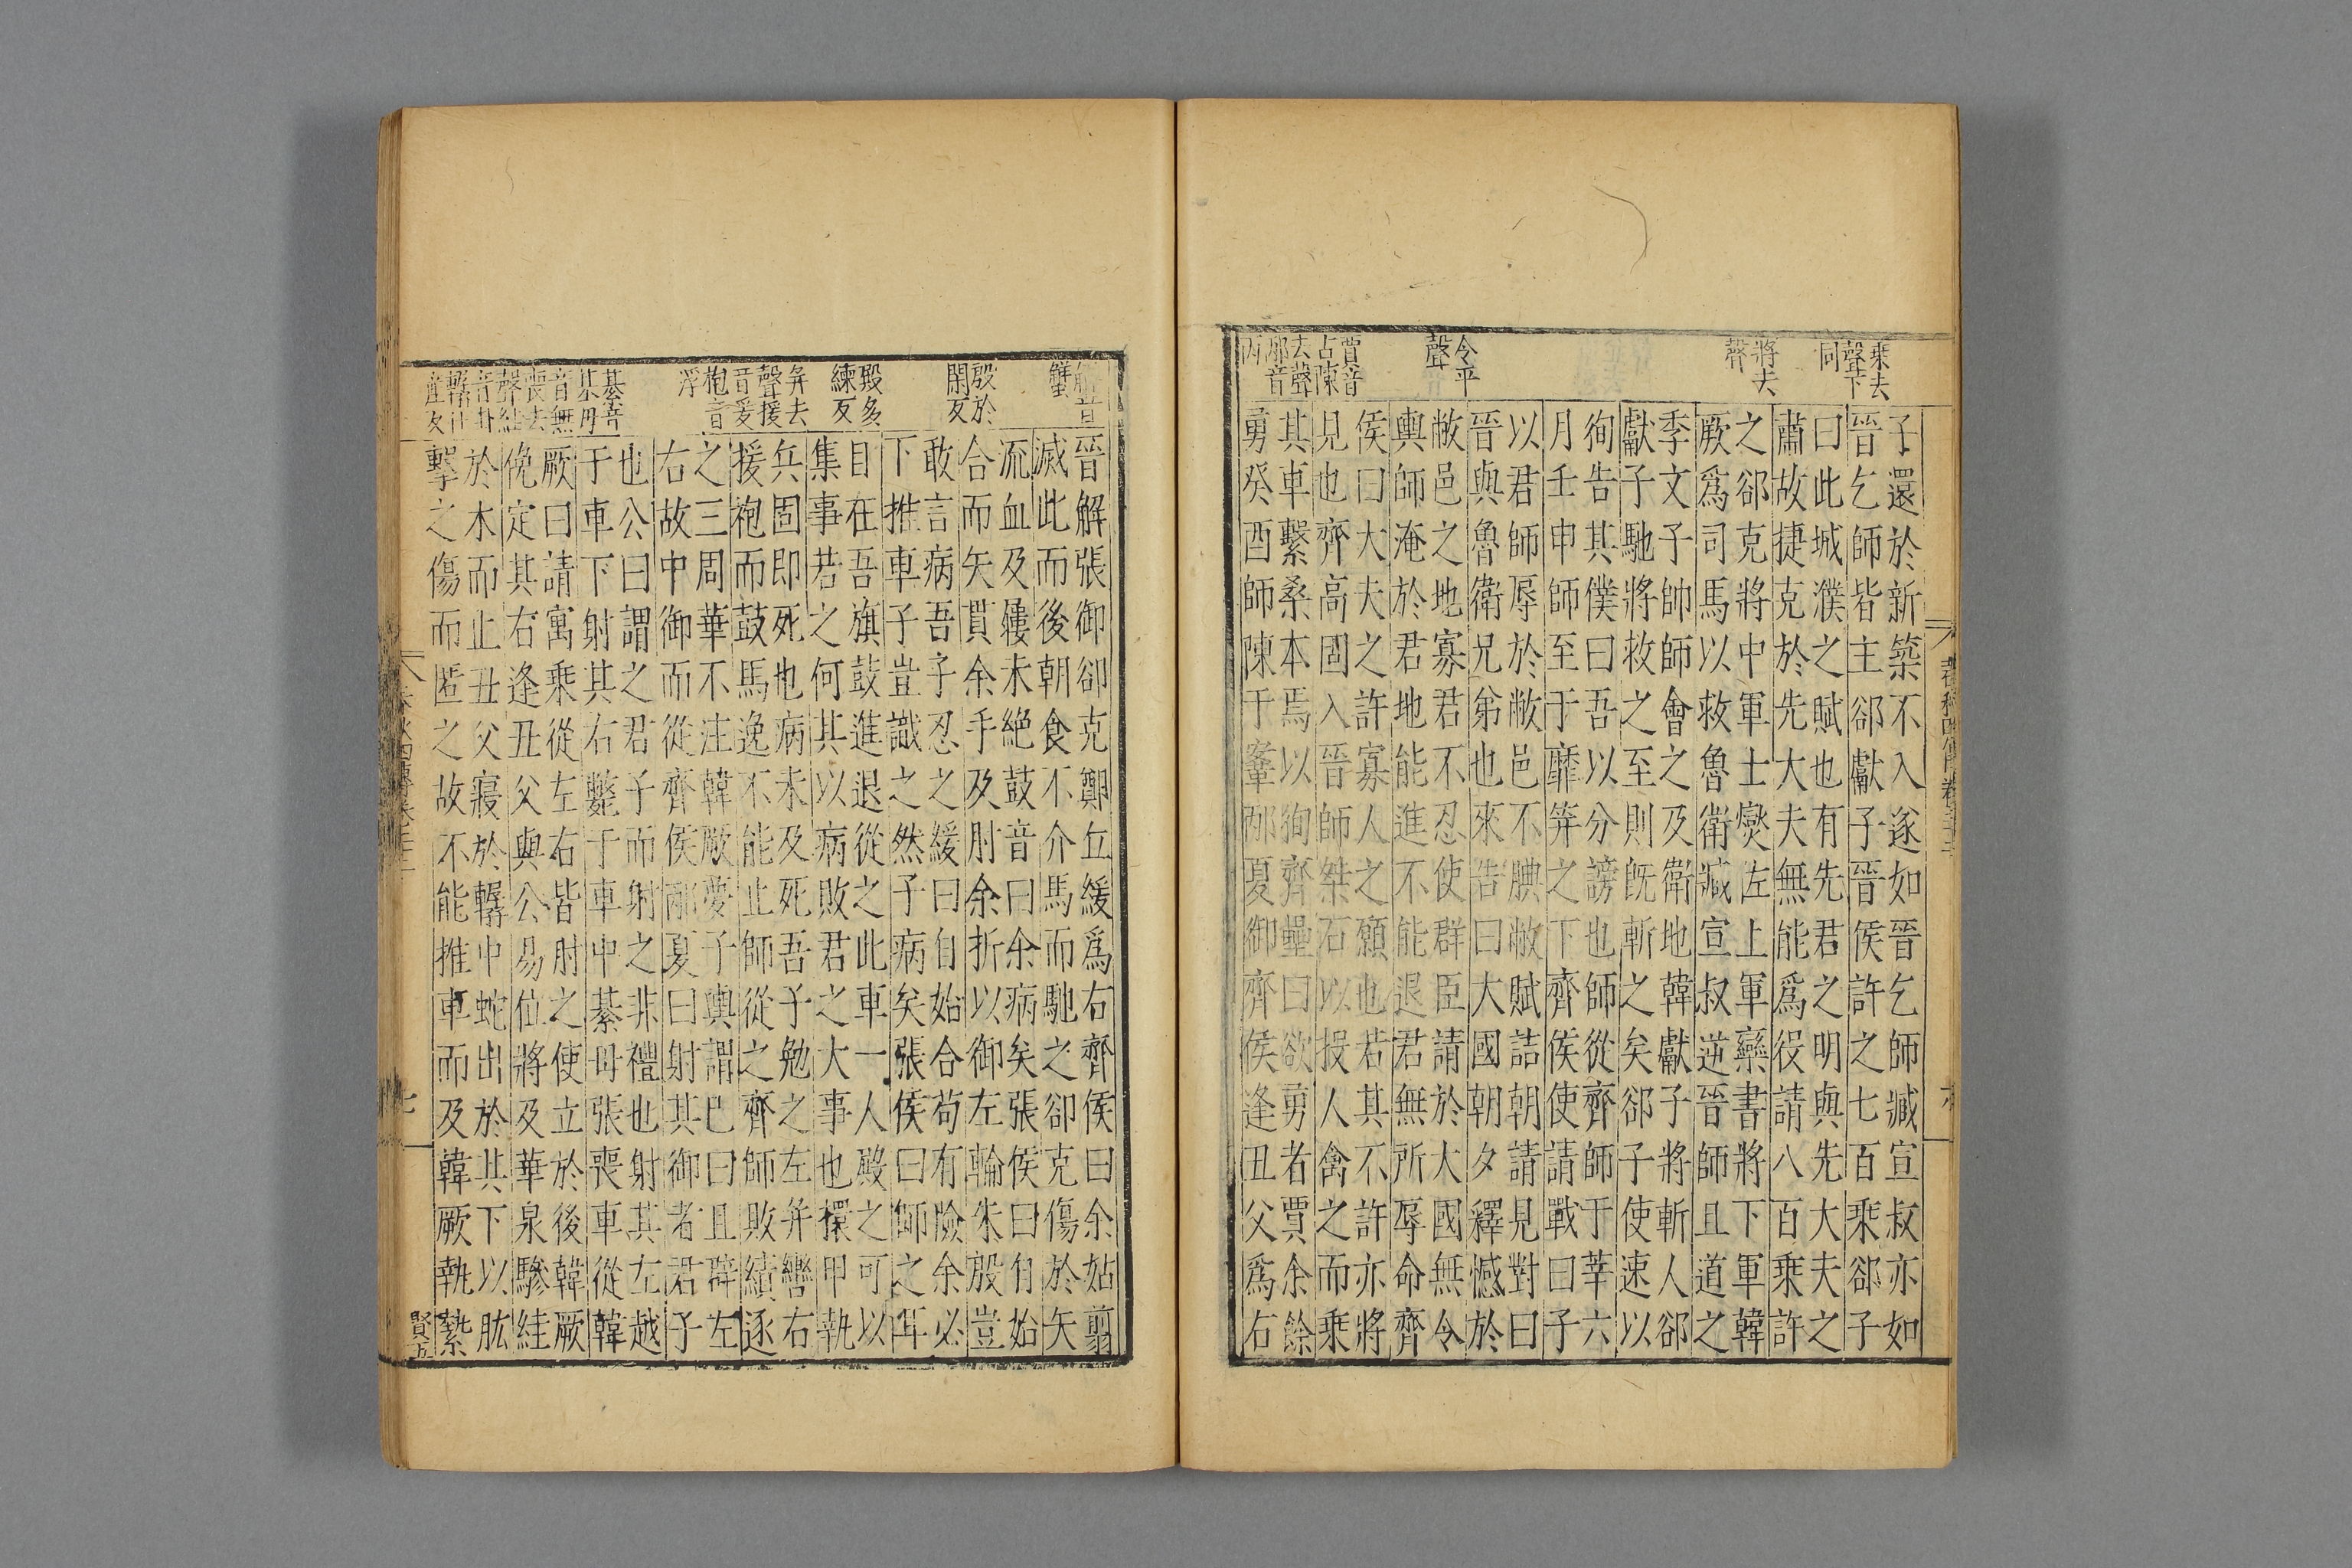 乘去
聲下
同
將去
聲
令平
聲
賈音
古陳
去聲
邴音
丙
子還於新築不入遂如晉乞師臧宣叔亦如
晉乞師皆主郤獻子晉侯許之七百乘郤子
曰此城濮之賦也有先君之明與先大夫之
肅故捷克於先大夫無能爲役請八百乘許
之郤克將中軍士燮佐上軍欒書將下軍韓
厥爲司馬以救魯衛臧宣叔逆晉師且道之
季文子帥師會之及衛地韓獻子將斬人郤
獻子馳將救之至則旣斬之矣郤子使速以
徇告其僕曰吾以分謗也師從齊師于莘六
月壬申師至于靡笄之下齊侯使請戰曰子
以君師辱於敝邑不腆敝賦詰朝請見對曰
晉與魯衛兄弟也來告曰大國朝夕釋憾於
敝邑之地寡君不忍使群臣請於大國無令
輿師淹於君地能進不能退君無所辱命齊
侯曰大夫之許寡人之願也若其不許亦將
見也齊高固入晉師桀石以投人禽之而乘
其車繫桑本焉以徇齊壘曰欲勇者賈余餘
勇癸酉師陳于鞌邴夏御齊侯逢丑父爲右
解音
蟹
殷於
閑反
殿多
練反
并去
聲援
音爰
袍音
浮
綦音
其毋
音無
喪去
聲絓
音卦
轏仕
產反
晉解張御郤克鄭丘緩爲右齊侯曰余姑翦
滅此而後朝食不介馬而馳之郤克傷於矢
流血及屨未絕鼓音曰余病矣張侯曰自始
合而矢貫余手及肘余折以御左輪朱殷豈
敢言病吾子忍之緩曰自始合苟有險余必
下推車子豈識之然子病矣張侯曰師之耳
目在吾旗鼓進退從之此車一人殿之可以
集事若之何其以病敗君之大事也擐甲執
兵固即死也病未及死吾子勉之左并轡右
援袍而鼓馬逸不能止師從之齊師敗績逐
之三周華不注韓厥夢子輿謂己曰且辟左
右故中御而從齊侯邴夏曰射其御者君子
也公曰謂之君子而射之非禮也射其左越
于車下射其右斃于車中綦毋張喪車從韓
厥曰請寓乘從左右皆肘之使立於後韓厥
俛定其右逢丑父與公易位將及華泉驂絓
於木而止丑父寢於轏中蛇出於其下以肱
擊之傷而匿之故不能推車而及韓厥執縶
七
賢五